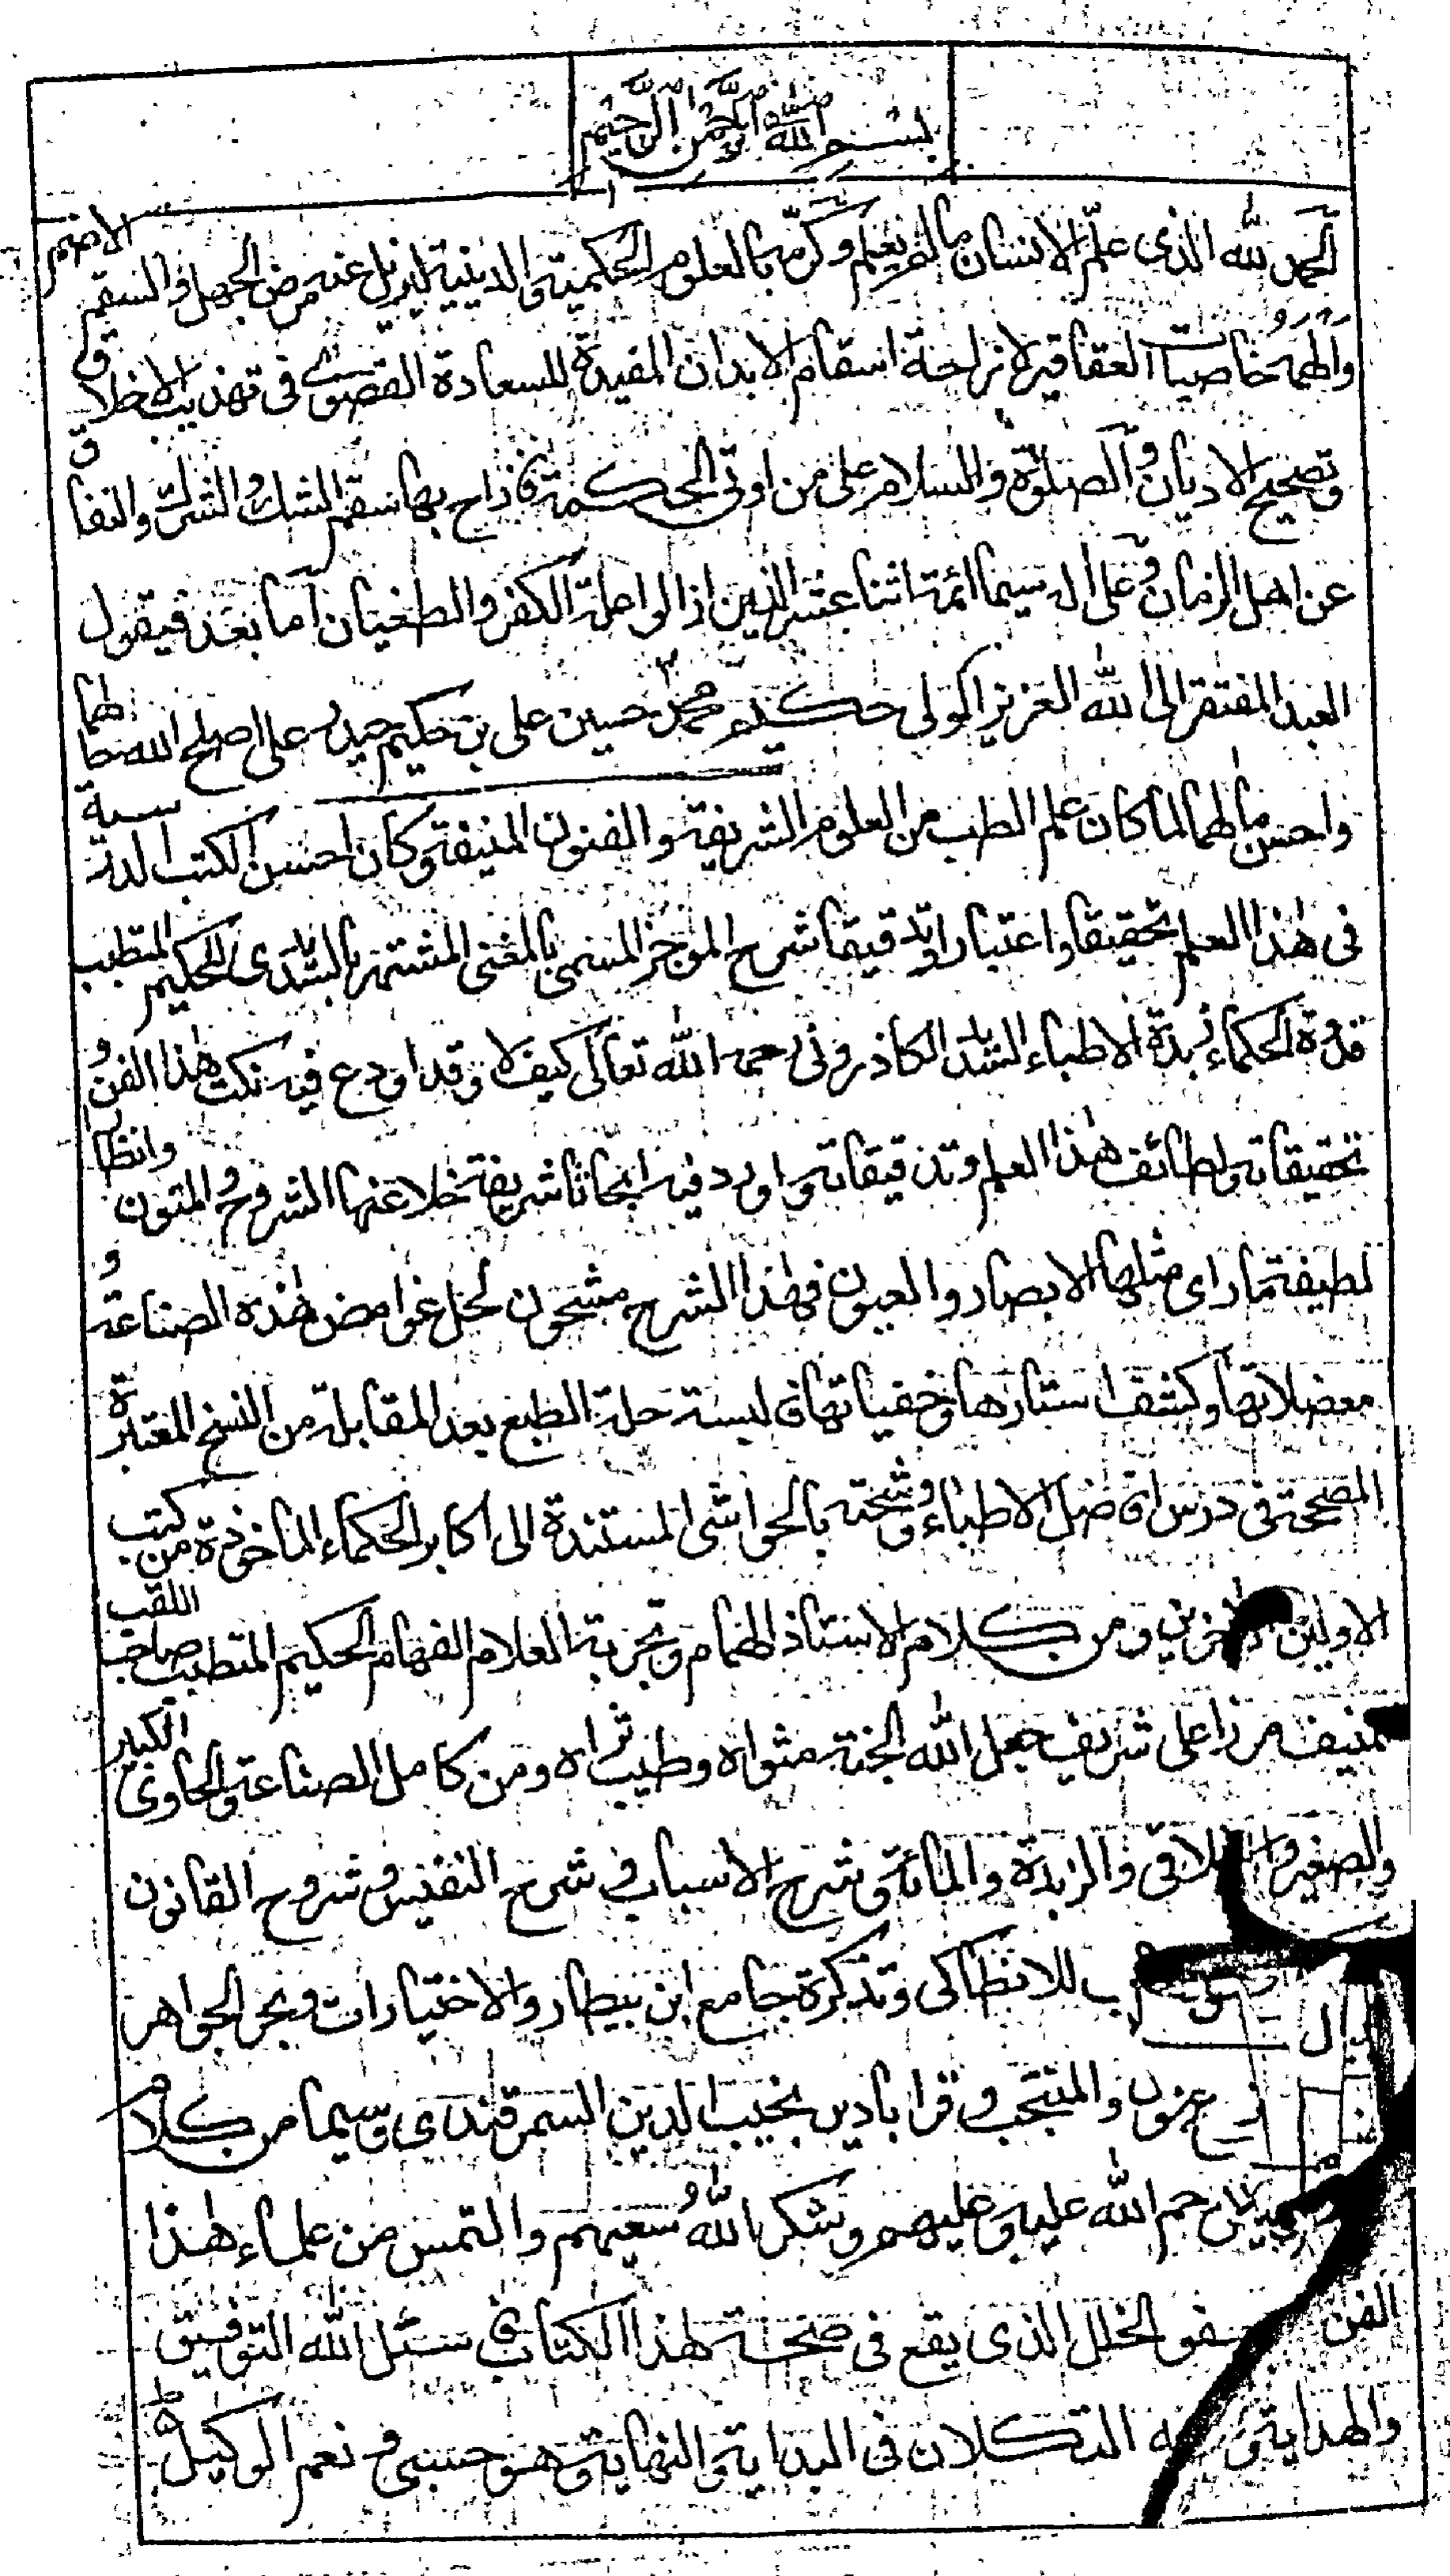 بسم الله الرحمن الرحيم
الحمد لله الذى علّم الانسان ما لم يعلم وكرّمه بالعلوم الحكمية والدينية ليزيل عنه مرض الجهل والسقم الاضم
والهمه خاصيات العقاقير لازاحة اسقام الابدان المفيدة للسعادة القصوى فى تهذيب الاخلاق
وتصحيح الاديان والصلوة والسلام على من اوتى الحكمة فازاح بها سقم الشك والشرك والنفاق
عن اهل الزمان وعلى اله سيما ائمة اثنا عشر الذين ازالوا علة الكفر والطغيان اما بعد فيقول
العبد المفتقر الى الله العزيز المولى حكيم محمد حسين على بن حكيم حيدر على اصلح الله حالهما
واحسن مالهما لما كان علم الطب من العلوم الشريفة والفنون المنيفة وكان احسن الكتب الدرسية
فى هذا العلم تحقيقا واعتبارا وتدقيقا شرح الموجز المسمى بالمغنى المشتهر بالسديدى للحكيم المتطبب
قدوة الحكماء زبدة الاطباء السديد الكاذرونى رحمه الله تعالى كيف لا وقد اودع فيه نكت هذا الفن و
تحقيقاته ولطائف هذا العلم وتدقيقاته واورد فيه ابحاثا شريفة خلا عنها الشروح والمتون وانظارا
لطيفة ما راى مثلها الابصار والعيون فهذا الشرح مشحون لحل غوامض هذه الصناعة و
معضلاتها وكشف استارها وخفياتها فالبسته حلة الطبع بعد المقابلة من النسخ المعتبرة
المصححة فى درس افاضل الاطباء ووشحته بالحواشى المستندة الى اكابر الحكماء الماخوذة من كتب
الاولين والاخرين ومن كلام الاستاذ الهمام وتجربة العلام الفهام الحكيم المتطبب صاحب اللقب
المنيف مرزا على شريف جعل الله الجنة مثواه وطيب ثراه ومن كامل الصناعة والحاوى الكبير
والصغير والايلاقى والزبدة والمائة وشرح الاسباب وشرح النفيس وشروح القانون
للانطاكى وتذكرة جامع ابن بيطار والاختيارات وبحر الجواهر
والمنتجب وقرابادين نجيب الدين السمرقندى وسيما من كلام
رحم الله عليه وعليهم وشكر الله سعيهم والتمس من علماء هذا
الفن الخلل الذى يقع فى صحة هذا الكتاب فنسئل الله التوفيق
والهداية التكلان فى البداية والنهاية وهو حسبى ونعم الوكيل